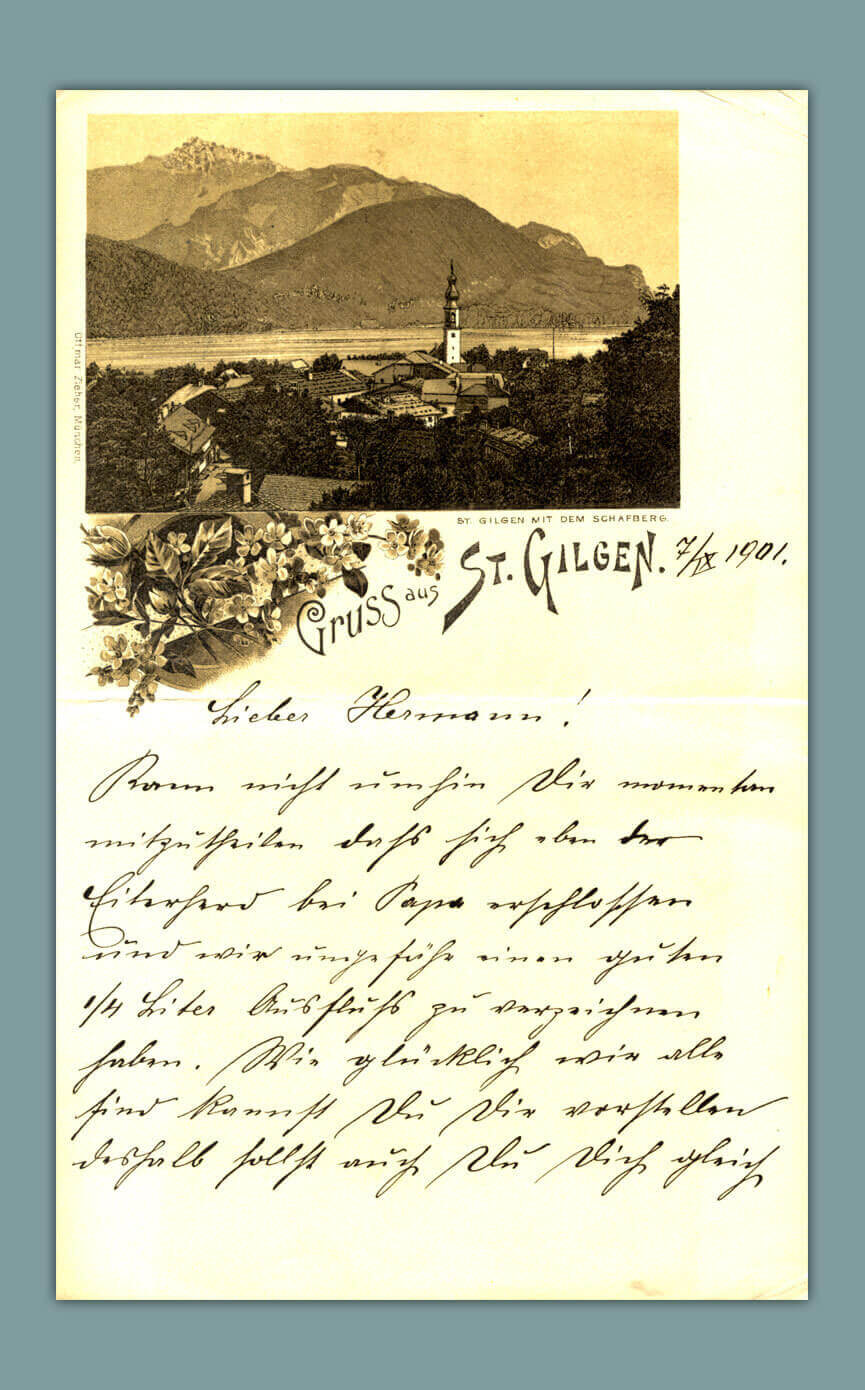 Ottmar Zieher, München.
ST. GILGEN MIT DEM SCHAFBERG.
Gruss aus ST. GILGEN. 7/IX 1901.
Lieber Hermann!
Kann nicht umhin Dir momentan
mitzutheilen dass sich eben der
Eiterherd bei Papa erschlossen
und wir ungefähr einen guten
1/4 Liter Ausfluss zu verzeichnen
haben. Wie glücklich wir alle
sind kannst Du Dir vorstellen
deshalb sollst auch Du Dich gleich